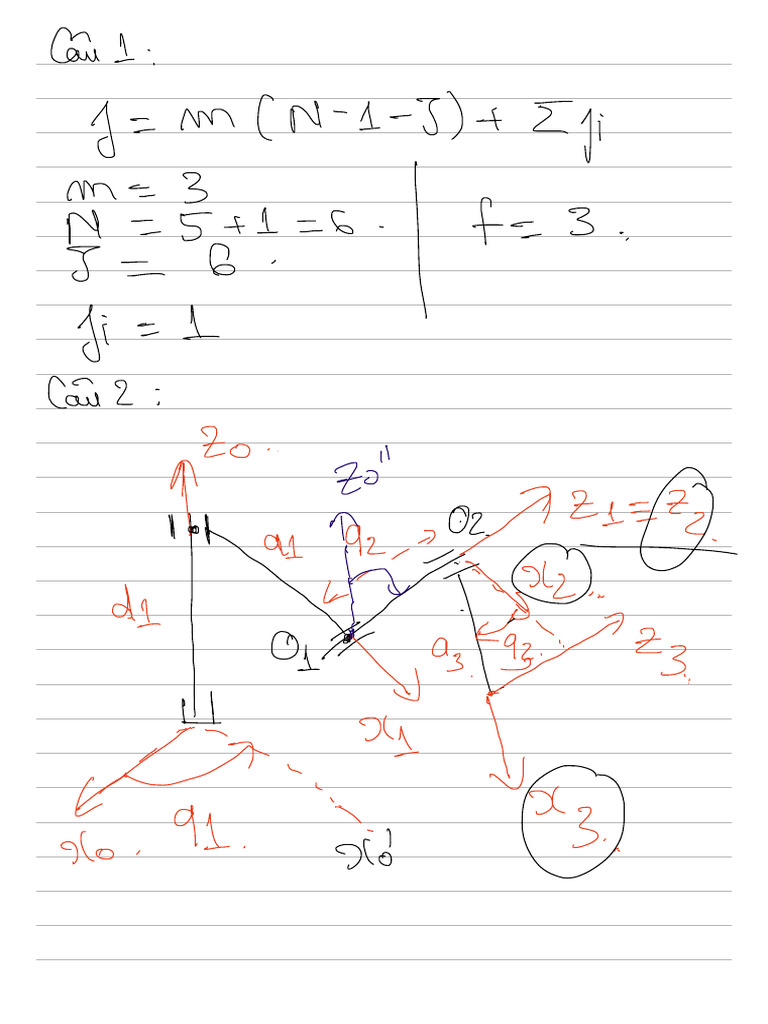 Câu 1 :
f = m (N - 1 - J) + Σ fi
m = 3
N = 5 + 1 = 6 .
f = 3 .
J = 6 .
fi = 1
Câu 2 :
z0 .
z0''
O2
z1 = z2 .
a1
q2
x2 ..
d1
O1
a3 .
q3 .
z3 .
x1
q1 .
x0 .
x0'
x3 .